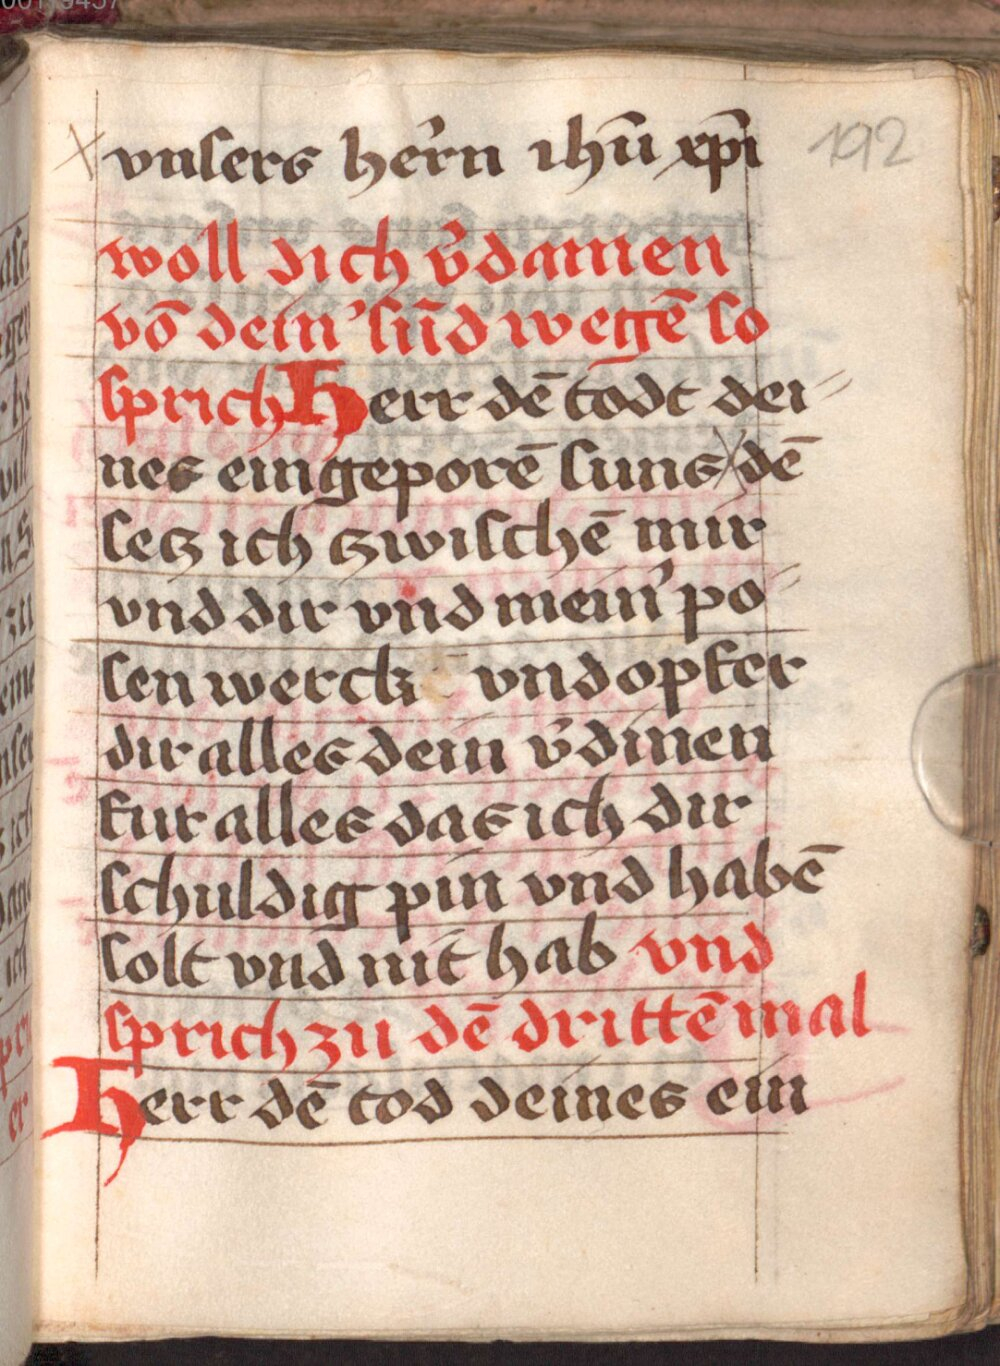 192
vnsers her̄n ihū xp̄i
woll dich v̉damen
vō dein̕ sūd wegē so
sprich Herr dē todt dei⸗
nes eingeporē suns dē
secz ich czwischē mir
vnd dir vnd mein̕ po⸗
sen werck vnd opfer
dir alles dein v̉dinen
fur alles das ich dir
schuldig pin vnd habē
solt vnd nit hab vnd
sprich zu dē drittē mal
Herr dē tod deines ein